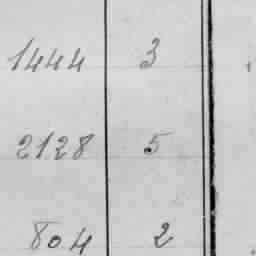 1444 3
2128 5
804 2